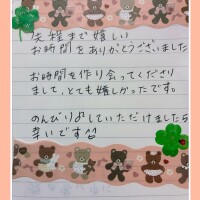 先程まで嬉しい
お時間をありがとうございました
お時間を作り会ってくださり
まして、とても嬉しかったです。
のんびり♂していただけましたら
幸いです